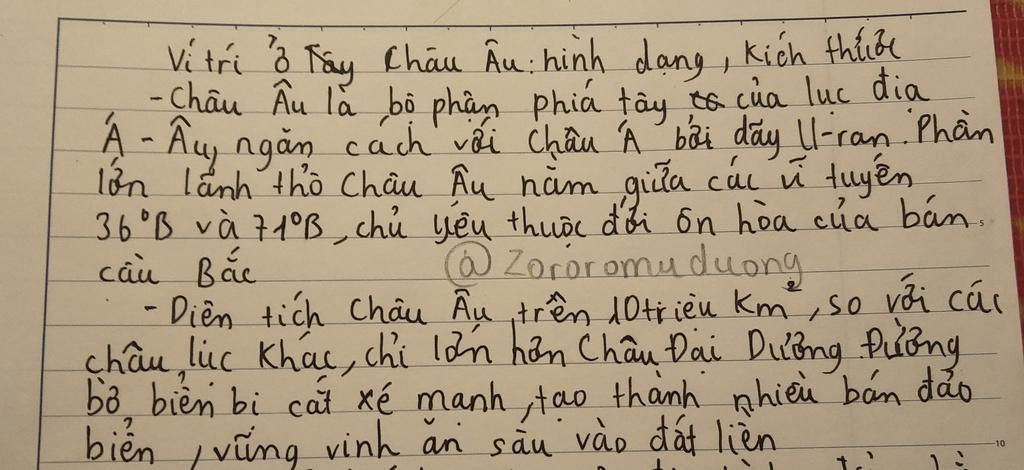 Ví trí ở Tây Châu Âu: hình dạng, kích thước
- Châu Âu là bô phận phiá tây của luc đia
Á - Âu, ngăn cách với Châu Á bởi dãy U-ran. Phần
lớn lãnh thổ Châu Âu nằm giữa các vĩ tuyến
36°B và 71°B, chủ yếu thuộc đới ôn hòa của bán
cầu Bắc
@Zororomuduong
- Diên tích Châu Âu trên 10triêu Km², so với các
châu luc Khác, chỉ lớn hơn Châu Đại Dương. Đường
bờ biển bi cắt xé manh, tạo thành nhiều bán đảo
biển, vũng vinh ăn sâu vào đất liền
10